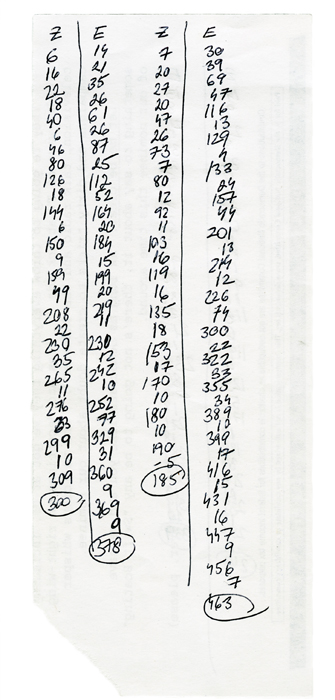 Z
6
16
22
18
40
6
46
80
126
18
144
6
150
9
159
49
208
22
230
35
265
11
276
23
299
10
309
300
E
14
21
35
26
61
26
87
25
112
52
164
20
184
15
199
20
219
11
230
12
242
10
252
77
329
31
360
9
369
9
378
Z
7
20
27
20
47
26
73
7
80
12
92
11
103
16
119
16
135
18
153
17
170
10
180
10
190
-5
185
E
30
39
69
47
116
13
129
4
133
24
157
44
201
13
214
12
226
74
300
22
322
33
355
34
389
10
399
17
416
15
431
16
447
9
456
7
463